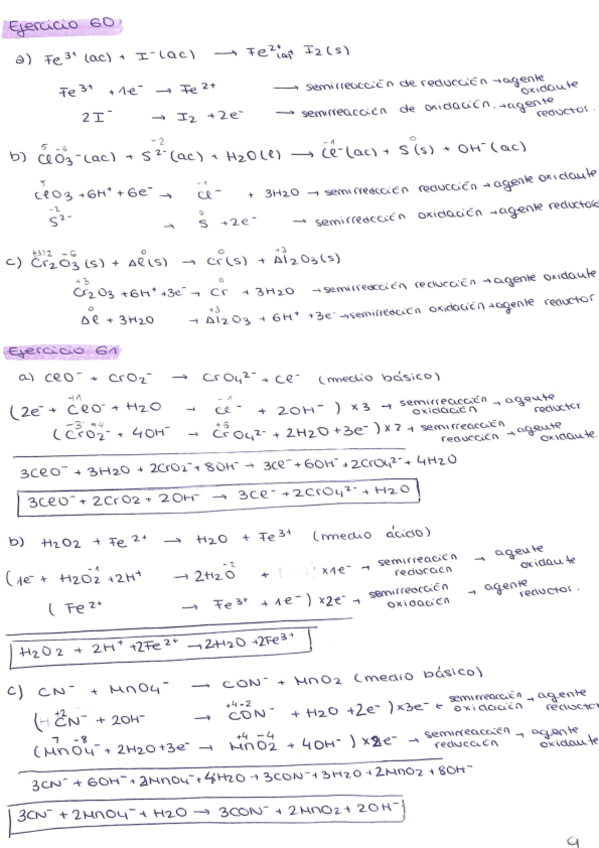 Ejercicio 60
a) Fe³⁺ (ac) + I⁻(ac) → Fe²⁺(ac)+ I₂(s)
Fe³⁺ +1e⁻ → Fe²⁺ → semirreacción de reducción → agente oxidante
2I⁻ → I₂ +2e⁻ → semirreacción de oxidación. → agente reductor.
5 -6 -2 -1 0
b) ClO₃⁻(ac) + S²⁻(ac) + H₂O(l) → Cl⁻(ac) + S(s) + OH⁻(ac)
5 -1
ClO₃ +6H⁺+6e⁻ → Cl⁻ + 3H₂O → semirreacción reducción → agente oxidante
-2 0
S²⁻ → S +2e⁻ → semirreacción oxidación → agente reductor
(+3)2 -6 0 0 +3
c) Cr₂O₃(s) + Al(s) → Cr(s) + Al₂O₃(s)
+3 0
Cr₂O₃ +6H⁺+3e⁻ → Cr + 3H₂O → semirreacción reducción → agente oxidante
0 +3
Al + 3H₂O → Al₂O₃ + 6H⁺ +3e⁻ → semirreacción oxidación → agente reductor
Ejercicio 61
a) ClO⁻ + CrO₂⁻ → CrO₄²⁻ + Cl⁻ (medio básico)
+1 -1
(2e⁻ + ClO⁻ + H₂O → Cl⁻ + 2OH⁻ ) x3 → semirreacción oxidación → agente reductor
+6
(CrO₂⁻ + 4OH⁻ → CrO₄²⁻ + 2H₂O +3e⁻) x2 → semirreacción reducción → agente oxidante.
3ClO⁻ + 3H₂O + 2CrO₂⁻ + 8OH⁻ → 3Cl⁻ + 6OH⁻ + 2CrO₄²⁻ + 4H₂O
3ClO⁻ + 2CrO₂ + 2OH⁻ → 3Cl⁻ + 2CrO₄²⁻ + H₂O
b) H₂O₂ + Fe²⁺ → H₂O + Fe³⁺ (medio ácido)
-1 -2
(1e⁻ + H₂O₂ +2H⁺ → 2H₂O + x1e⁻ → semirreación reducción → agente oxidante
( Fe²⁺ → Fe³⁺ + 1e⁻ ) x2e⁻ → semirreacción oxidación → agente reductor.
H₂O₂ + 2H⁺ +2Fe²⁺ → 2H₂O +2Fe³⁺
c) CN⁻ + MnO₄⁻ → CON⁻ + MnO₂ (medio básico)
+2 +4 -2
( CN⁻ + 2OH⁻ → CON⁻ + H₂O +2e⁻ ) x3e⁻ → semirreacción oxidación → agente reductor
7 -8 +4 -4
(MnO₄⁻ + 2H₂O +3e⁻ → MnO₂ + 4OH⁻ ) x2e⁻ → semirreacción reducción → agente oxidante
3CN⁻ + 6OH⁻ + 2MnO₄⁻ + 4H₂O → 3CON⁻ + 3H₂O + 2MnO₂ + 8OH⁻
3CN⁻ + 2MnO₄⁻ + H₂O → 3CON⁻ + 2MnO₂ + 2OH⁻
9